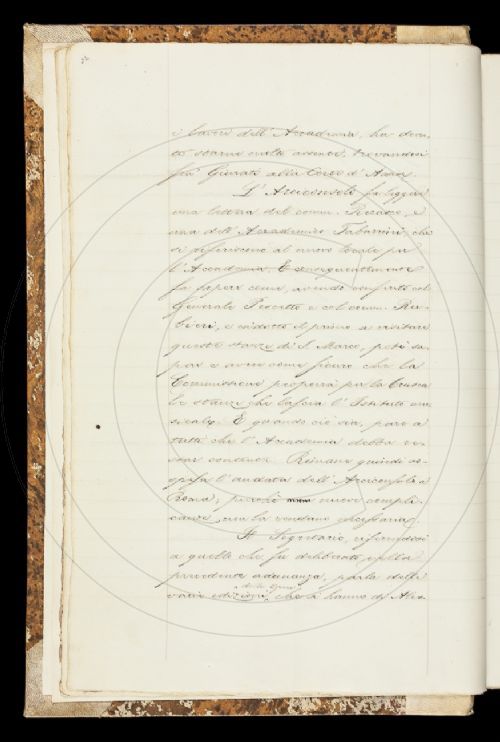 i lavori dell'Accademia, ha dovu-
to starne molto assente, trovandosi
fra i Giurati alla Corte d'Assise.
L'Arciconsolo fa leggere
una lettera del comm. e
una dell'Accademico Tabarrini, che
si riferiscono al nuovo locale per
l'Accademia. E conseguentemente
fa sapere come, avendo conferito col
Generale e col comm. Bar-
bieri, e condotto il primo a visitare
queste stanze di S. Marco, potè sa-
pere e avere come sicuro che la
Commissione proporrà per la Crusca
le stanze che lascia l'Istituto mu-
sicale. E quando ciò sia, pare a
tutti che l'Accademia debba re-
star contenta. Rimane quindi so-
spesa l'andata dell'Arciconsolo a
Roma; perchè nuove compli-
canze non la rendano necessaria.
Il Segretario, riferendosi
a quello che fu deliberato nella
precedente adunanza, parla delle
varie edizioni che si hanno di Ales-